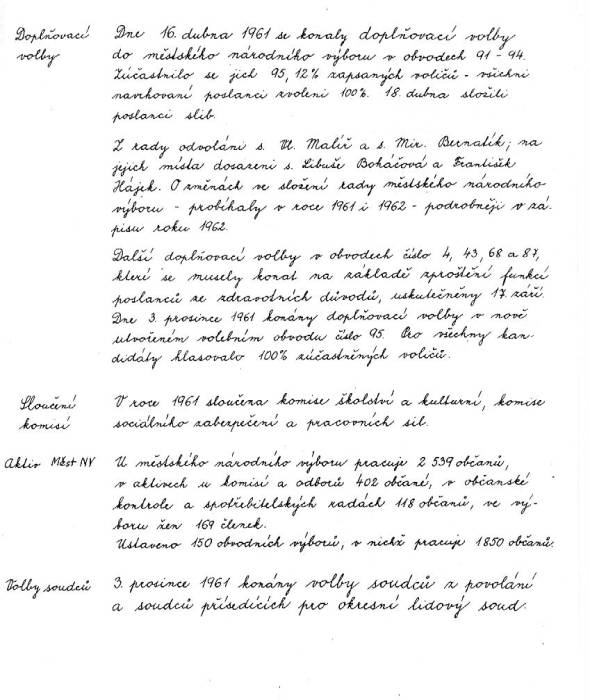 Doplňovací
volby
Dne 16. dubna 1961 se konaly doplňovací volby
do městského národního výboru v obvodech 91 - 94.
Zúčastnilo se jich 95,12% zapsaných voličů - všichni
navrhovaní poslanci zvoleni 100%. 18. dubna složili
poslanci slib.
Z rady odvoláni s. Vl. Malíř a s. Mir. Bernatík; na
jejich místa dosazeni s. Libuše Boháčová a František
Hájek. O změnách ve složení rady městského národního
výboru - probíhaly v roce 1961 i 1962 - podrobněji v zá-
pisu roku 1962.
Další doplňovací volby v obvodech číslo 4, 43, 68 a 87,
které se musely konat na základě zproštění funkcí
poslanců ze zdravotních důvodů, uskutečněny 17. září.
Dne 3. prosince 1961 konány doplňovací volby v nově
utvořeném volebním obvodu číslo 95. Pro všechny kan-
didáty hlasovalo 100% zúčastněných voličů.
Sloučení
komisí
V roce 1961 sloučena komise školství a kulturní, komise
sociálního zabezpečení a pracovních sil.
Aktiv Měst NV
U městského národního výboru pracuje 2 539 občanů,
v aktivech u komisí a odborů 402 občané, v občanské
kontrole a spotřebitelských radách 118 občanů, ve vý-
boru žen 169 členek.
Ustaveno 150 obvodních výborů, v nichž pracuje 1850 občanů.
Volby soudců
3. prosince 1961 konány volby soudců z povolání
a soudců přísedících pro okresní lidový soud.